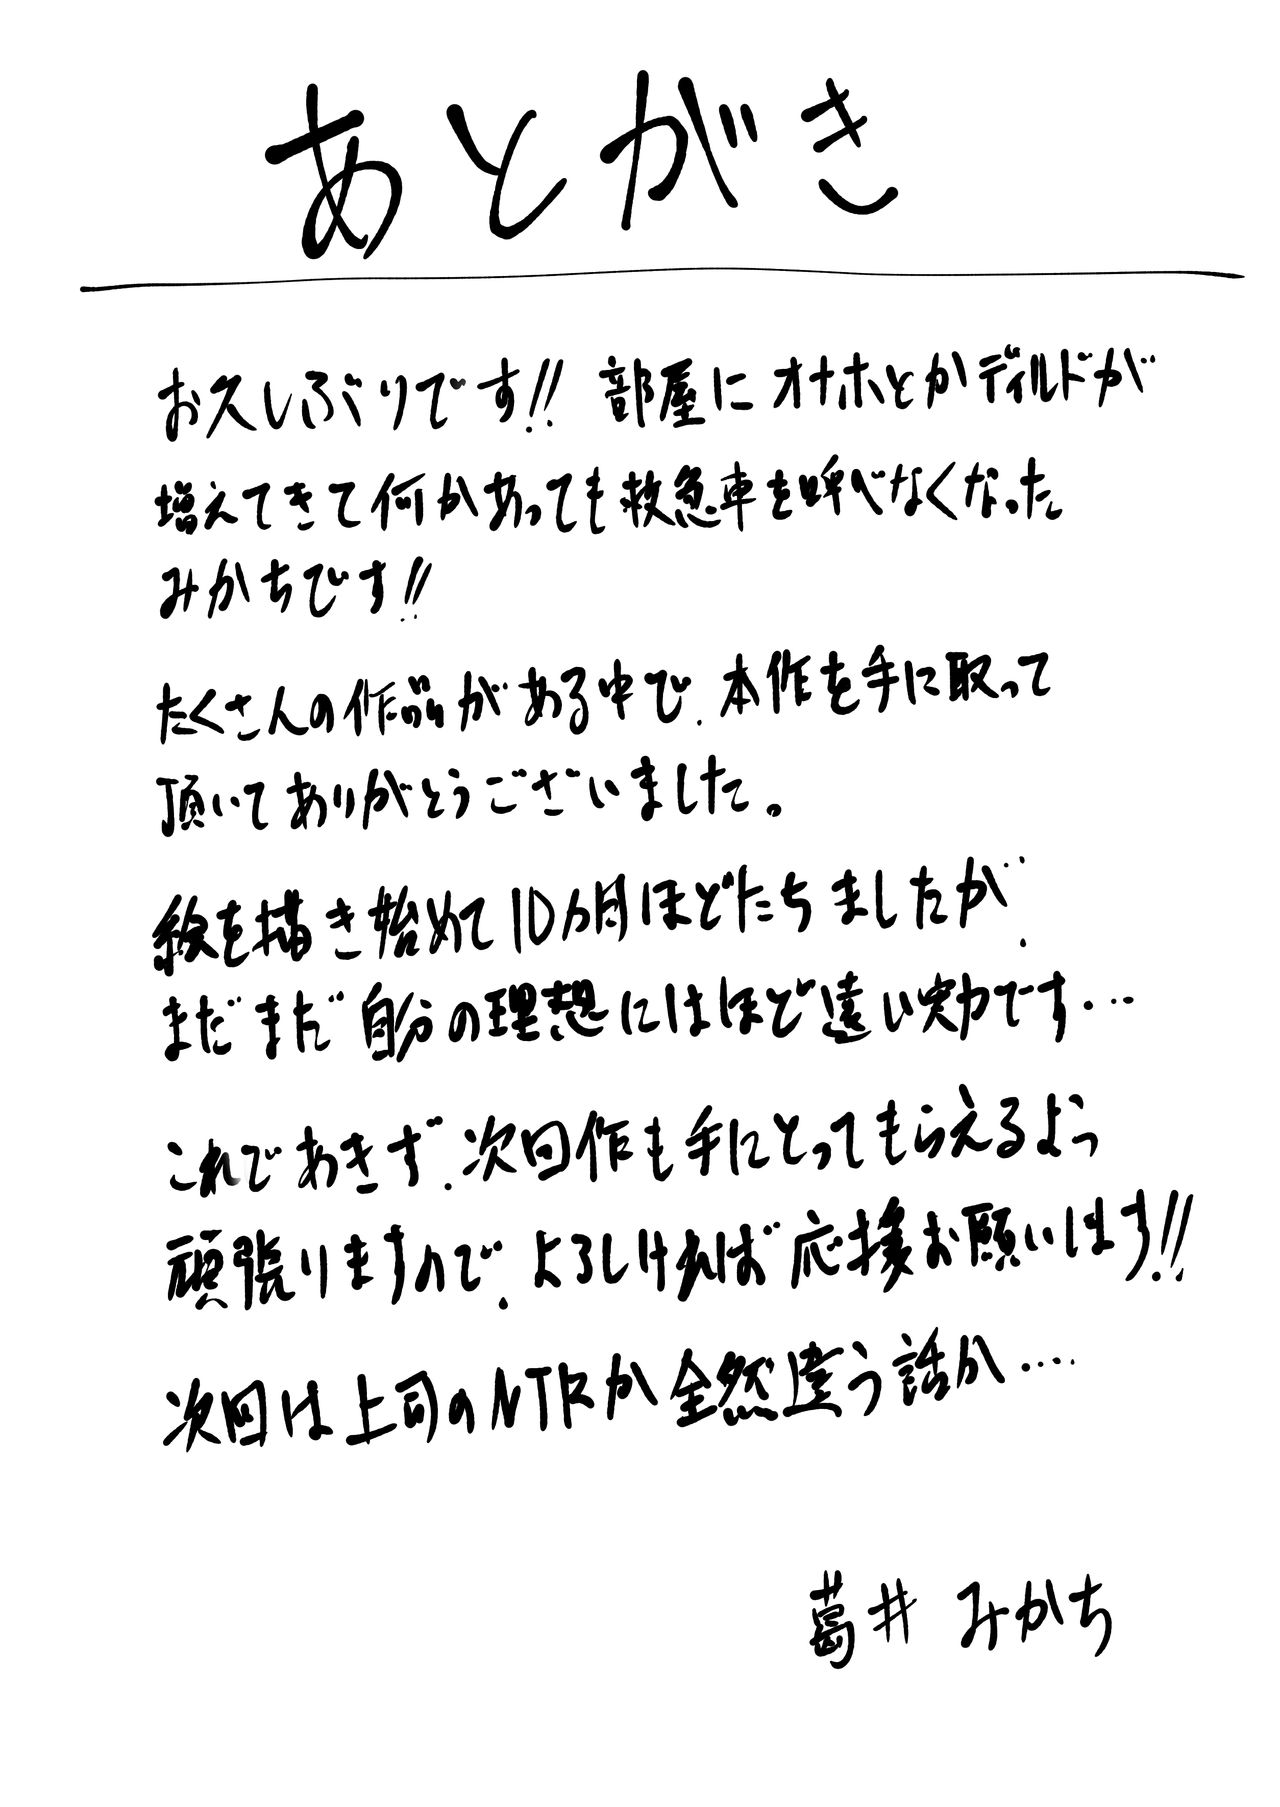 あとがき
お久しぶりです!! 部屋にオナホとかディルドが
増えてきて何かあっても救急車を呼べなくなった
みかちです!!
たくさんの作品がある中で、本作を手に取って
頂いてありがとうございました。
絵を描き始めて10カ月ほどたちましたが、
まだまだ自分の理想にはほど遠い実力です…
これであきず、次回作も手にとってもらえるよう
頑張りますので、よろしければ応援お願いします!!
次回は上司のNTRか全然違う話か….
葛井 みかち